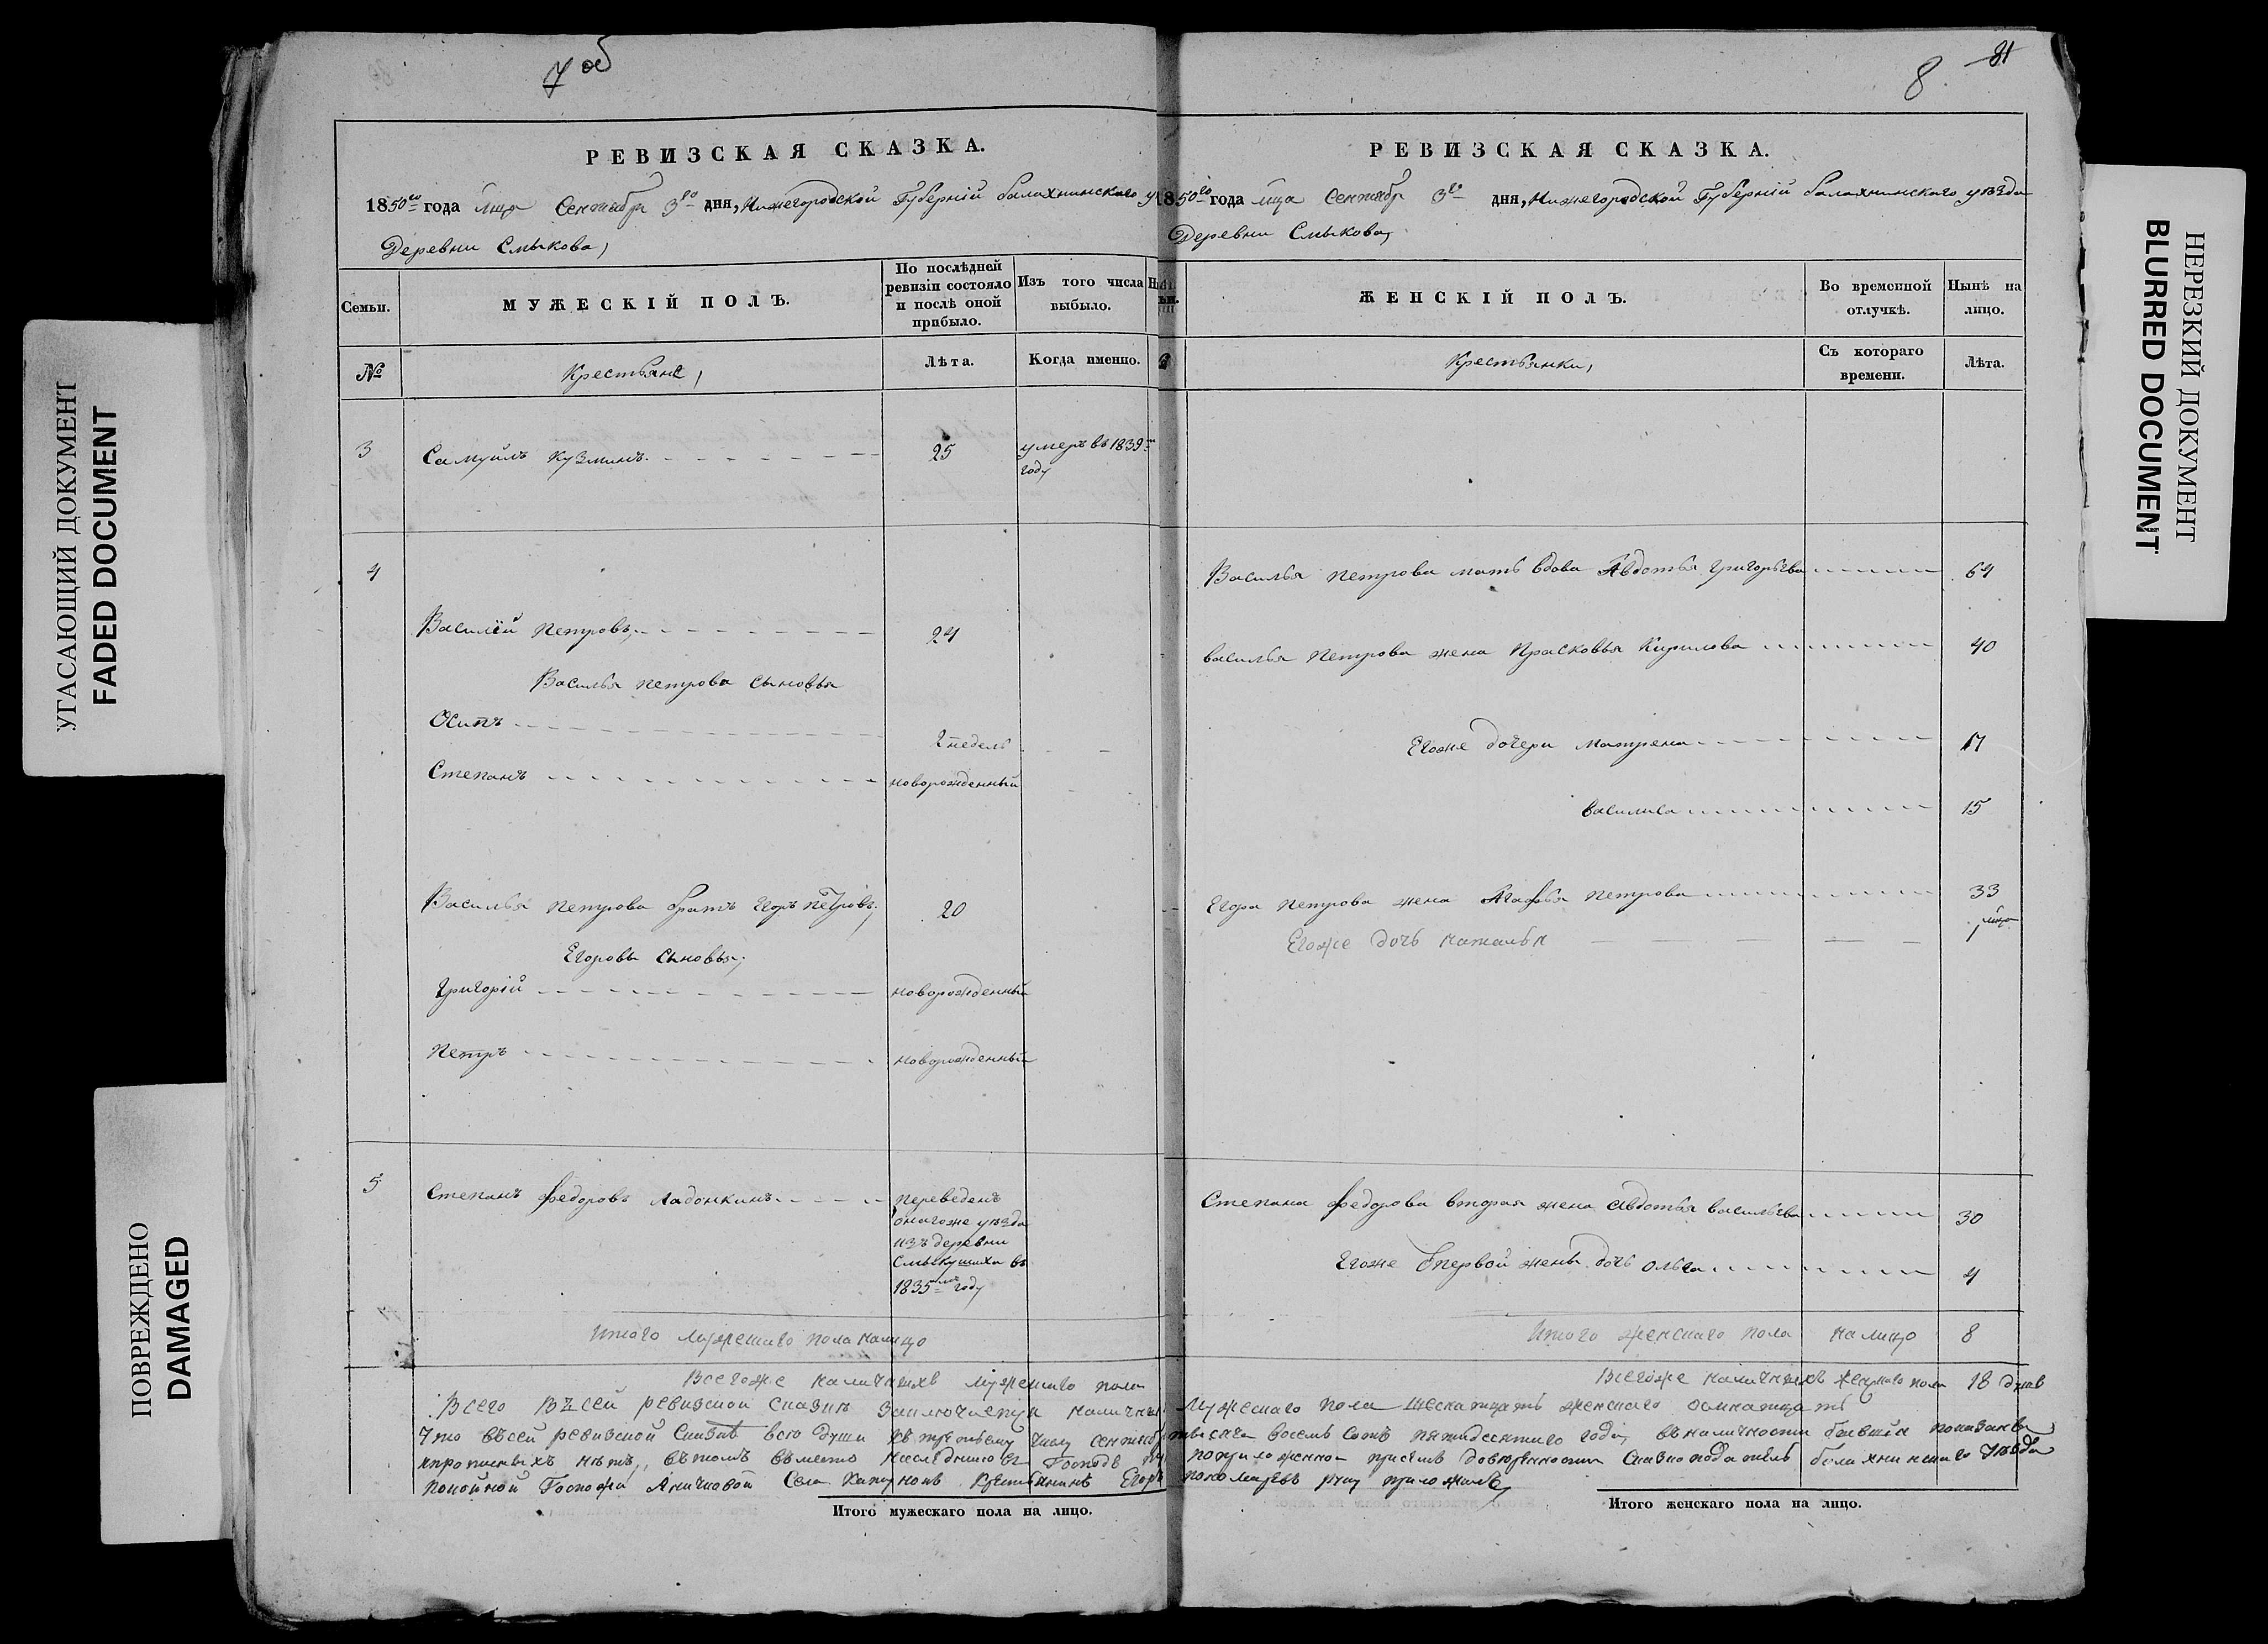 7 об
РЕВИЗСКАЯ СКАЗКА.
1850го года мца Сентября 3го дня, Нижегородской Губерніи балахнинскаго
Деревни Смыкова,
Семьи.
МУЖЕСКІЙ ПОЛЪ.
По послѣдней ревизіи состояло и послѣ оной прибыло.
Изъ того числа выбыло.
№
Крестьяне,
Лѣта.
Когда именно.
3
Самуилъ Кузминъ
25
умеръ въ 1839м
году
4
Василій Петровъ,
24
Василья Петрова сыновья
Осипъ
2 недель
Степанъ
новорожденный
Василья Петрова братъ Егоръ Петровъ,
20
Егоровы сыновья,
Григорій
новорожденный
Петръ
новорожденный
5
Степанъ Федоровъ Ладонкинъ
Переведенъ
онагоже уезда
изъ деревни
въ
1835мъ году
Итого мужескаго пола налицо
Всегоже наличныхъ мужескаго пола
Всего въ сей ревизской сказкѣ заключается наличныхъ
Что въ сей ревизской Сказке всѣ души къ третьему числу сентября
и прописныхъ нѣтъ, въ томъ въместо Господъ
покойной Госпожи Аничковой Села Крестьянинъ Егоръ
Итого мужескаго пола на лицо.
8
81
РЕВИЗСКАЯ СКАЗКА.
1850го года мца Сентября 3го дня, Нижегородской Губерніи балахнинскаго уезда
Деревни Смыкова,
ЖЕНСКІЙ ПОЛЪ.
Во временной отлучкѣ.
Нынѣ на лицо.
Крестьянки,
Съ котораго времени.
Лѣта.
Василья Петрова мать вдова Авдотья Григорьева
64
Василья Петрова жена Прасковья Кирилова
40
Егоже дочери Матрена
17
Василиса
15
Егора Петрова жена Агафья Петрова
33
Егоже дочь Наталья
1 мца
Степана Федорова вторая жена Авдотья Васильева
30
Егоже первой жены дочь Ольга
4
Итого женскаго пола налицо 8
Всегоже наличныхъ женскаго пола 18 душъ
Мужескаго пола шеснатцать женскаго осмнатцать
тысяча восемь сотъ пятидесятого года, въ наличности бывшія показаны
по приложенной присемъ довѣренности Сказкоподатель балахнинскаго Уезда
руку приложилъ
Итого женскаго пола на лицо.
УГАСАЮЩИЙ ДОКУМЕНТ
FADED DOCUMENT
ПОВРЕЖДЕНО
DAMAGED
НЕРЕЗКИЙ ДОКУМЕНТ
BLURRED DOCUMENT